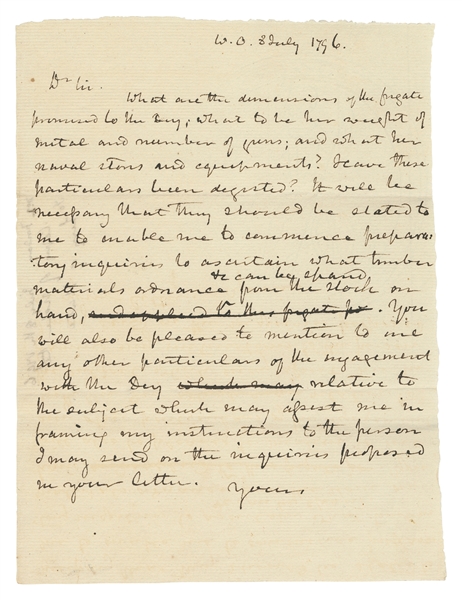 W. O. 8 July 1796.
Dr Sir.
What are the dimensions of the frigate
promised to the Dey; what to be her weight of
metal and number of guns; and what her
naval stores and equipments? Have these
particulars been digested? It will be
necessary that they should be stated to
me to enable me to commence prepara-
tory inquiries to ascertain what timber
&c can be spared
materials ordnance from the stock on
hand, and applied to this frigate. You
will also be pleased to mention to me
any other particulars of the engagement
with the Dey which may relative to
the subject which may assist me in
framing my instructions to the person
I may send on the inquiries proposed
in your letter.
Yours